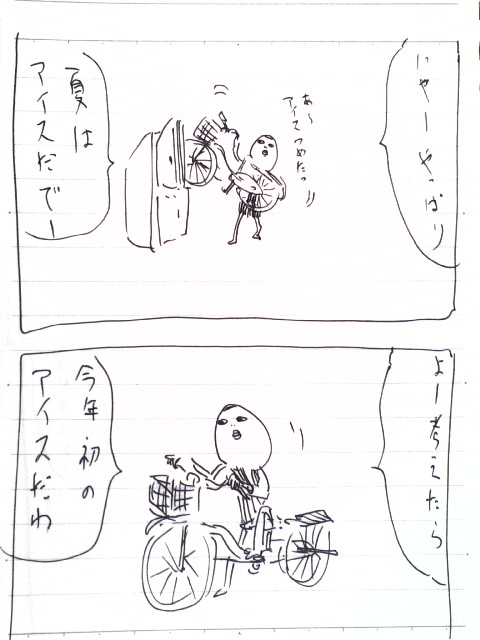 にゃーやっぱり
あ〜
アイスつめたっ!!
夏は
アイスだでー
よー考えたら
今年初の
アイスだわ